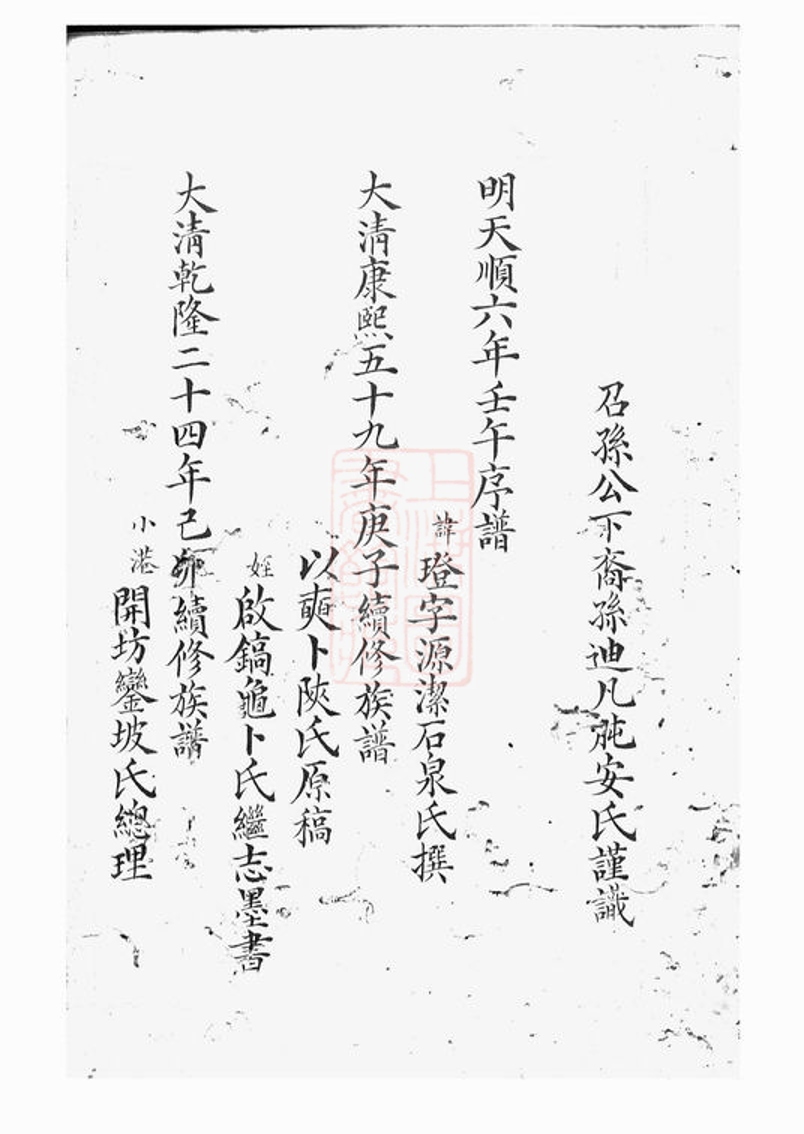 召孫公下裔孫迪凡肫安氏謹識
明天順六年壬午序譜
諱璒字源潔石泉氏撰
大清康熙五十九年庚子續修族譜
以奭卜陝氏原稿
姪啟鎬龜卜氏繼志墨書
大清乾隆二十四年己卯續修族譜
小港開坊鑾坡氏總理